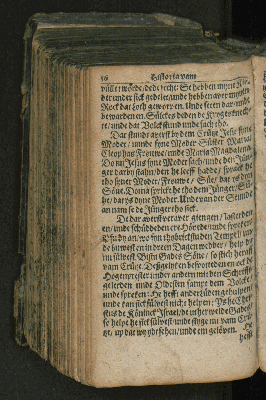 56 Historia vam
vüllet wörde, de dar secht: Se hebben myne Kle-
der under sick gedelet, unde hebben aver mynen
Rock dat Loth geworpen. Unde seten dar, unde
bewarden en. Sülckes deden de Krygesknech-
te, unde dat Volck stund unde sach tho.
Dar stunde averst by dem Crütze Jesu syne
Moder, unde syner Moder Süster Maria
Cleophas Frouwe, unde Maria Magdalena.
Do nu Jesus syne Moder sach, unde den Jün-
ger darby stahn, den he leeff hadde, sprack he
tho syner Moder, Frouwe, Süe, dat ys dyn
Söne. Darna sprickt he tho dem Jünger, Süe-
he, dat ys dyne Moder. Unde van der Stunde
an nam se de Jünger tho sick.
De dar averst vöraver giengen, lasterden
en, unde schüddeden ere Höuede, unde spreken:
Pfu dy an, wo fyn thobrickstu den Tempel, unde
de buwest en in dren Dagen wedder, help dy
nu sülvest. Bistu Gades Söne, so stich heraff
vam Crütze. Desgelyken bespotteden en ock de
Hogenprester under anderen mit den Schrifft-
gelerden unde Oldesten sampt dem Volcke,
unde spreken: He hefft anderen geholpen,
unde kan sick sülvest nicht helpen: Ys he Chri-
stus de Köninck Israel, de utherwelde Gades,
so helpe he sick sülvest, unde styge nu vam Crü-
tze, up dat wy ydt sehen, unde em gelöven. He
hefft